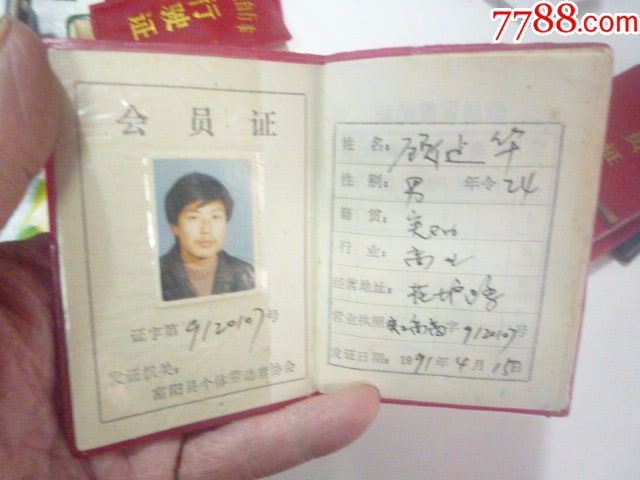 7788.com
自行车
行驶证
会员证
证字第9120107号
发证机关:
富阳县个体劳动者协会
姓名: 顾建华
性别: 男 年令 24
籍贯:
行业: 商业
经营地址:
营业执照 字9120107号
发证日期: 1991年4月15日
证